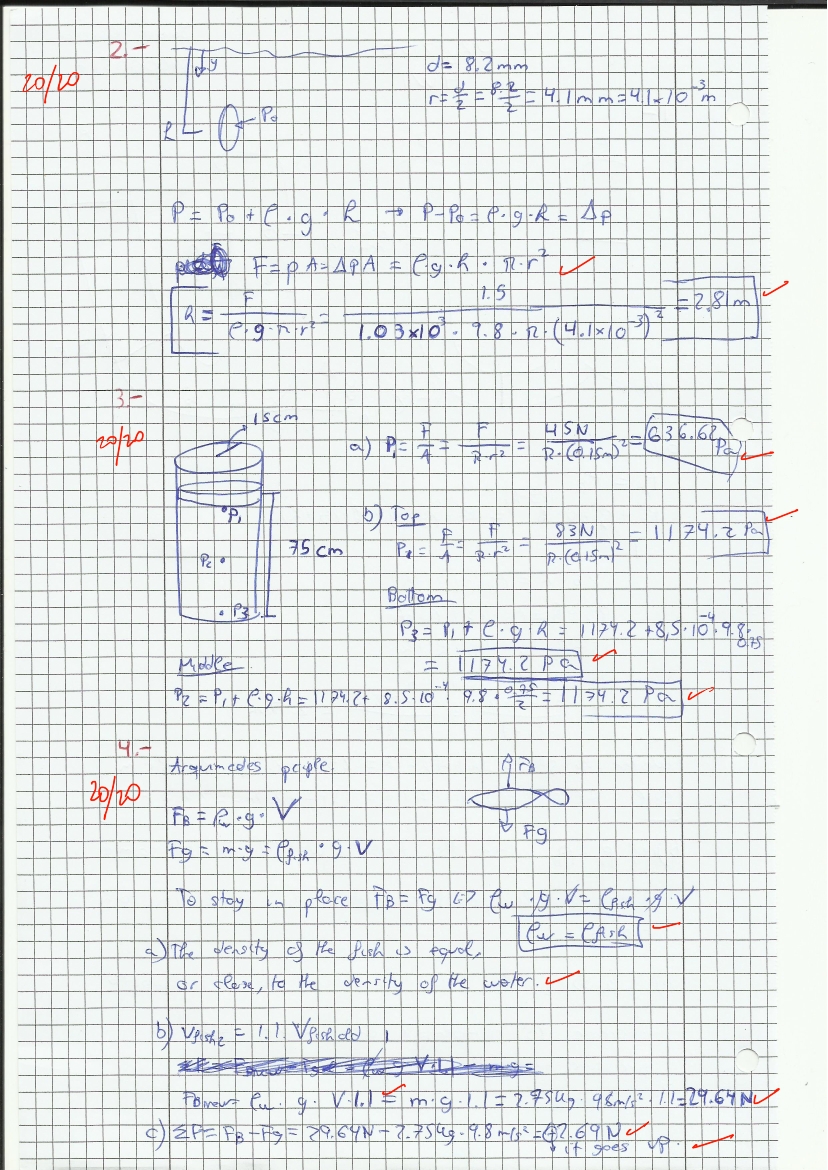 2.-
20/20
y
d = 8.2 mm
r = d/2 = 8.2/2 = 4.1 mm = 4.1×10⁻³ m
h
P₀
P = P₀ + ρ · g · h → P-P₀ = ρ·g·h = Δp
F = p A = Δp A = ρ·g·h · π·r²
h = F/(ρ·g·π·r²) = 1.5/(1.03×10³ · 9.8 · π·(4.1×10⁻³)²) = 2.81 m
3.-
20/20
15cm
a) P₁ = F/A = F/(π·r²) = 45N/(π·(0.15m)²) = 636.62 Pa
P₁
P₂
P₃
75 cm
b) Top
P₁ = F/A = F/(π·r²) = 83N/(π·(0.15m)²) = 1174.2 Pa
Bottom
P₃ = P₁ + ρ·g·h = 1174.2 + 8,5·10⁻⁴·9.8·0.75
= 1174.2 Pa
Middle
P₂ = P₁ + ρ·g·h = 1174.2 + 8.5·10⁻⁴ · 9.8 · 0.75/2 = 1174.2 Pa
4.-
20/20
Arquimedes
F_B = ρw · g · V
F_B
Fg
Fg = m·g = ρfish · g · V
To stay in place F_B = Fg ⇔ ρw · g · V = ρfish · g · V
ρw = ρfish
a) The density of the fish is equal,
or close, to the density of the water.
b) Vfish₂ = 1.1 · Vfish old
F_B new = ρw · g · V·1.1 = m·g·1.1 = 2.75kg · 9.8m/s² · 1.1 = 29.64 N
c) ΣF = F_B - Fg = 29.64N - 2.75kg·9.8m/s² = (+)2.69N
it goes up.